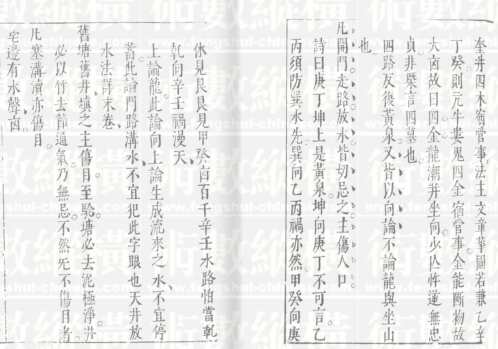 奎井四木官事法主文章華國若兼乙辛
丁癸則亢牛婁鬼四金宿官事全能斷物故
大凶故曰四金龍潮井坐向少忤逆無忠
貞非槩言四墓也
四路反復黃泉又皆以向論不論龍與坐山
也
凡開門走路放水皆切忌之主傷人口
詩曰庚丁坤上是黃泉坤向庚丁不可言乙
丙須防巽水先巽向乙丙禍亦然甲癸向庚
休見艮艮見甲癸凶百千辛壬水路怕當乾
乾向辛壬禍漫天
上論龍此論向上論生成流來之水不宜停
蓄此論門路溝水不宜犯此字眼也天井放
水法詳末卷
舊塘舊井填之主傷目至騐塘必去泥極淨井
必以竹去節通氣乃無忌不然死不傷目者
凡塞溝瀆亦傷目
宅邊有水聲凶